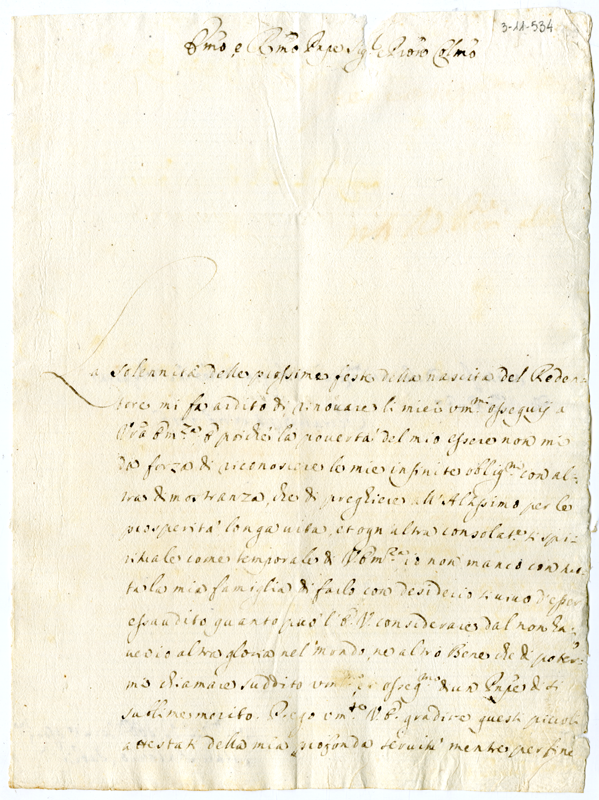 3-11-534
Emo e Rmo Prnpe Sigr Prone Colmo
La solennità delle pijssime feste della nascita del Reden-
tore mi fa ardito di rinouare li miei vmmi ossequij a
Vra Emza e poiche la pouertà del mio essere non mi
da forza di riconoscere le mie infinite obligni con al-
tra dimostranza, che di preghiere all'Altissimo per le
prosperità longa uita, et ogn altra consolatne si spi-
rituale come temporale di V Emza io non manco con tut-
ta la mia famiglia di farlo con desiderio si uiuo d'esser
essaudito quanto può l'E V. considerare dal non ha-
uer io altra gloria nel mondo, ne altro Bene che di poter-
mi chiamare suddito vmmo, et osseqmo d'un Prnpe di si
sublime merito. Prego vmte V. E. gradire questi piccoli
attestati della mia profonda seruitù mentre per fine